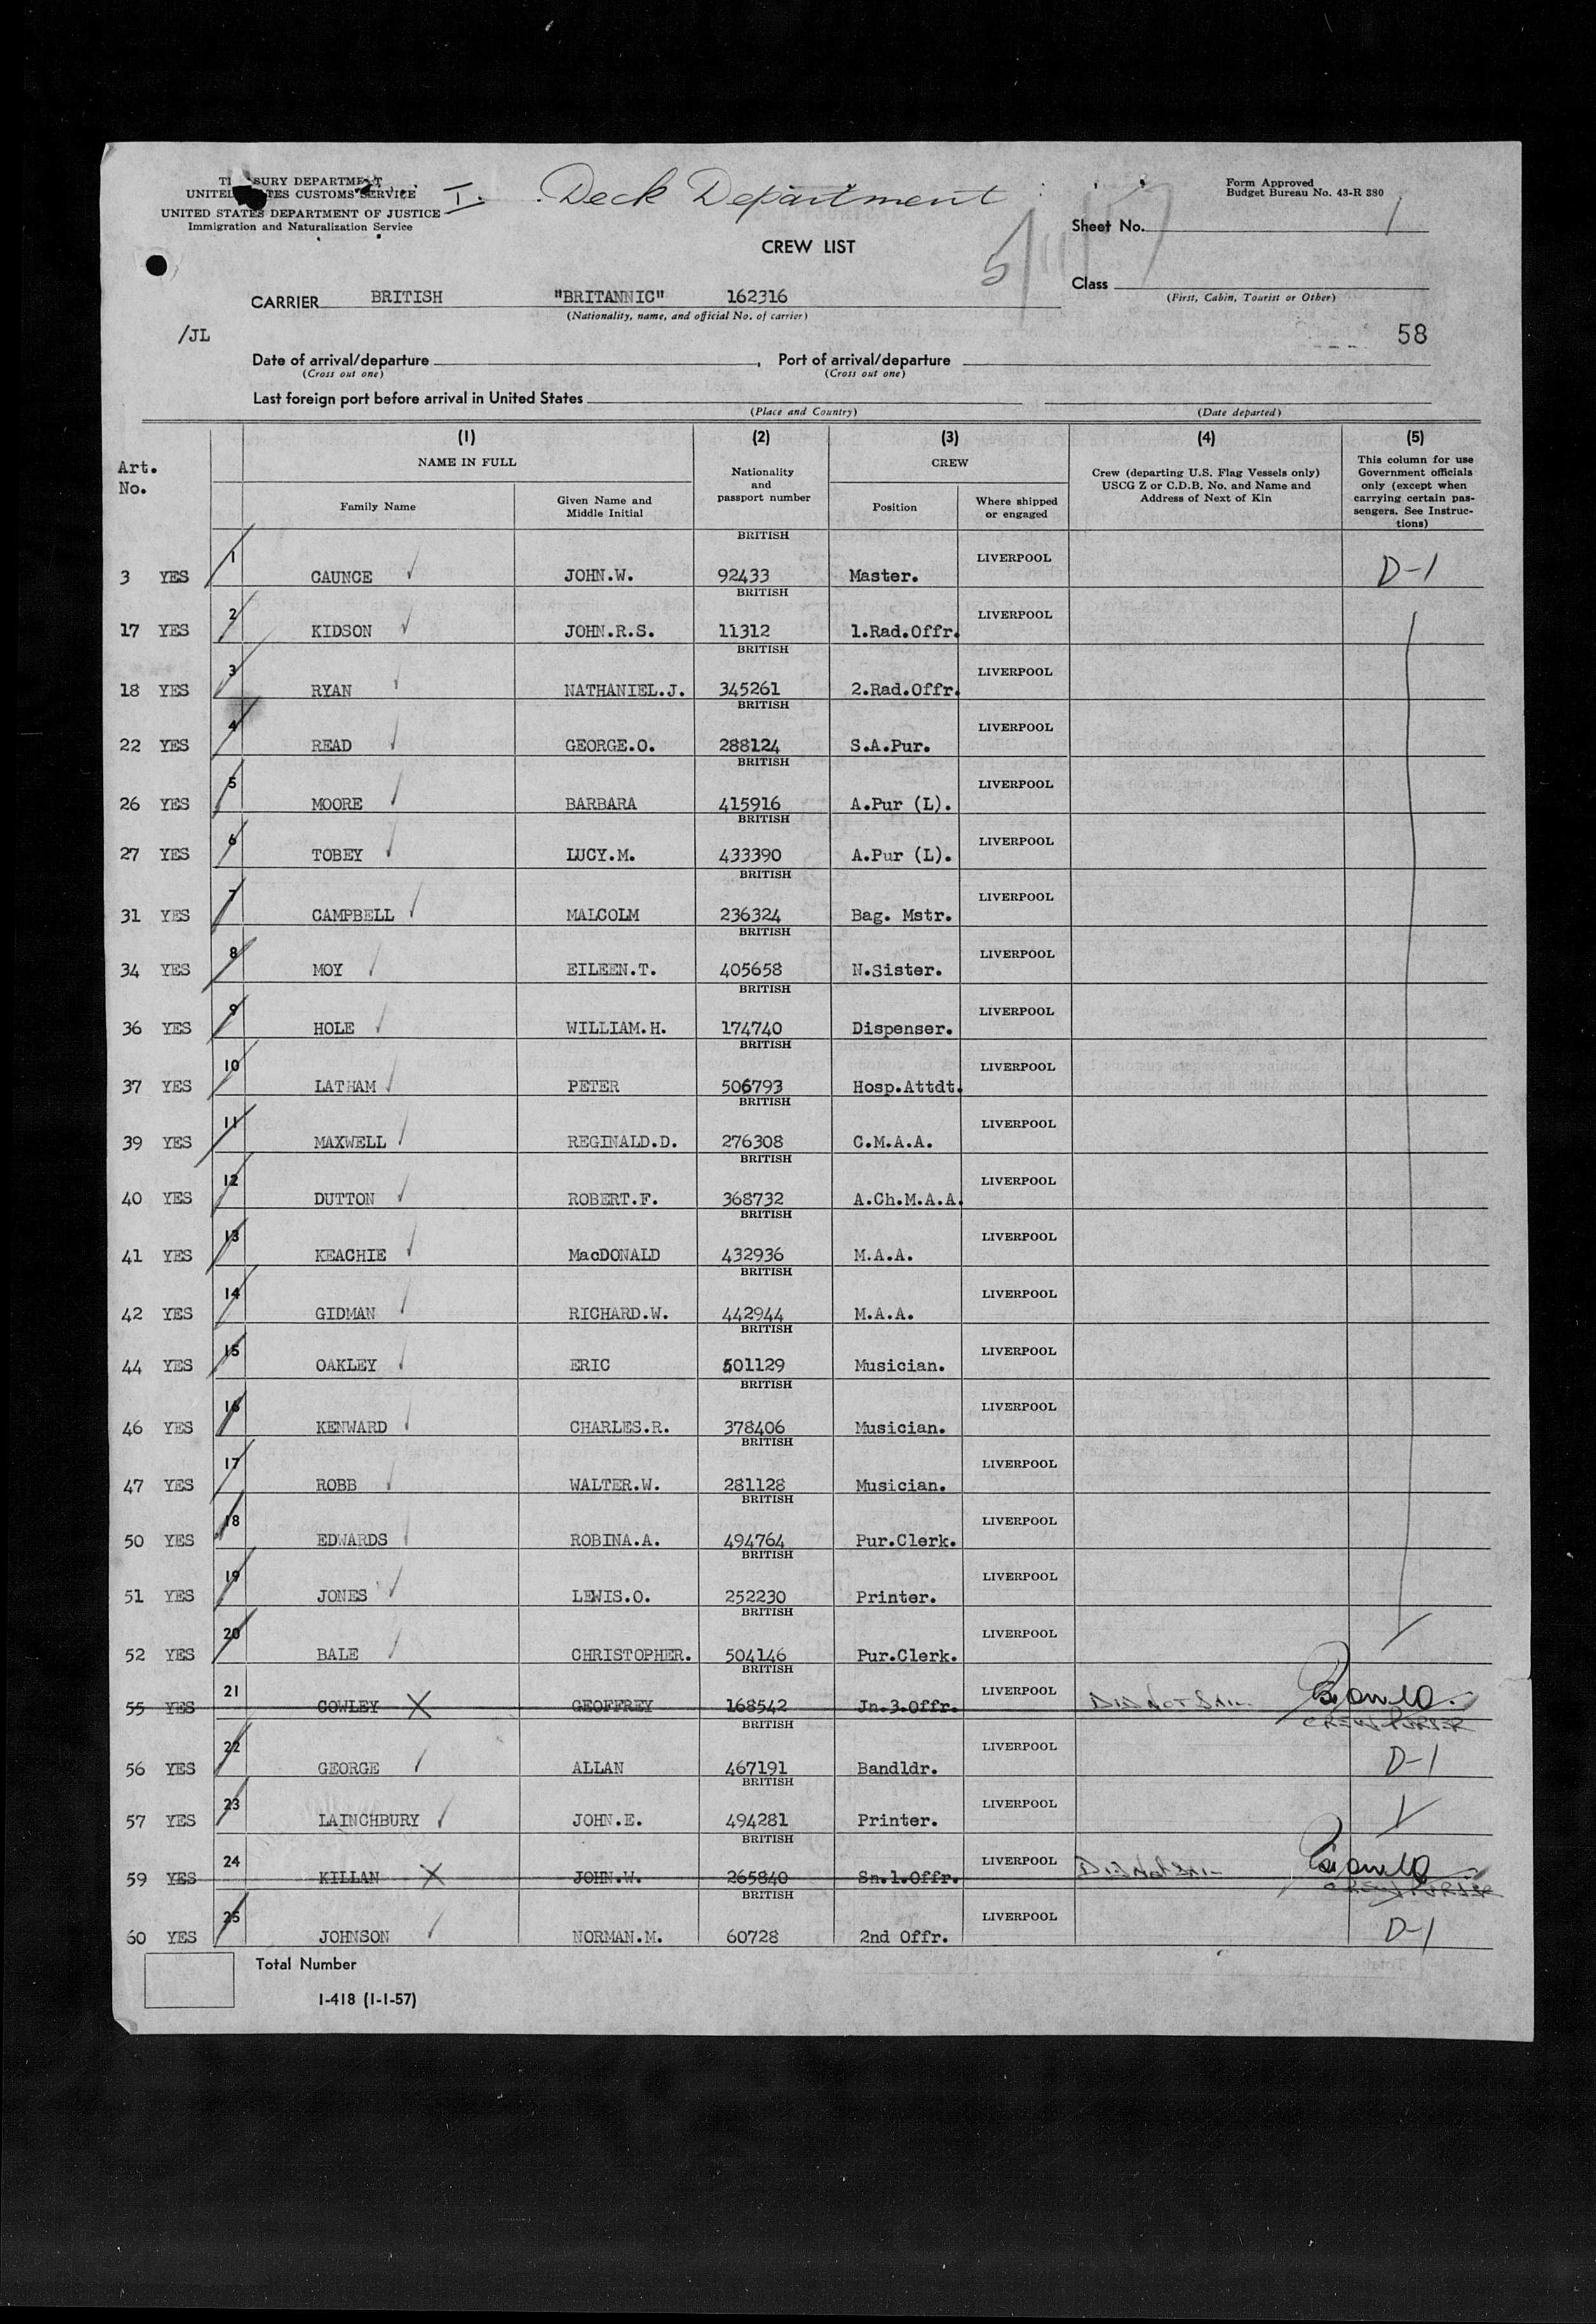 TREASURY DEPARTMENT
UNITED STATES CUSTOMS SERVICE
UNITED STATES DEPARTMENT OF JUSTICE
Immigration and Naturalization Service
I. Deck Department
Form Approved
Budget Bureau No. 43-R 380
CREW LIST
Sheet No. 1
CARRIER BRITISH "BRITANNIC" 162316
(Nationality, name, and official No. of carrier)
Class
(First, Cabin, Tourist or Other)
/JL
58
Date of arrival/departure , Port of arrival/departure
(Cross out one) (Cross out one)
Last foreign port before arrival in United States
(Place and Country) (Date departed)
Art. No. (1) NAME IN FULL (2) Nationality and passport number (3) CREW (4) Crew (departing U.S. Flag Vessels only) USCG Z or C.D.B. No. and Name and Address of Next of Kin (5) This column for use Government officials only (except when carrying certain passengers. See Instructions)
Family Name Given Name and Middle Initial Position Where shipped or engaged
3 YES 1 CAUNCE JOHN.W. BRITISH 92433 Master. LIVERPOOL D-1
17 YES 2 KIDSON JOHN.R.S. BRITISH 11312 1.Rad.Offr. LIVERPOOL
18 YES 3 RYAN NATHANIEL.J. BRITISH 345261 2.Rad.Offr. LIVERPOOL
22 YES 4 READ GEORGE.O. BRITISH 288124 S.A.Pur. LIVERPOOL
26 YES 5 MOORE BARBARA BRITISH 415916 A.Pur (L). LIVERPOOL
27 YES 6 TOBEY LUCY.M. BRITISH 433390 A.Pur (L). LIVERPOOL
31 YES 7 CAMPBELL MALCOLM BRITISH 236324 Bag. Mstr. LIVERPOOL
34 YES 8 MOY EILEEN.T. BRITISH 405658 N.Sister. LIVERPOOL
36 YES 9 HOLE WILLIAM.H. BRITISH 174740 Dispenser. LIVERPOOL
37 YES 10 LATHAM PETER BRITISH 506793 Hosp.Attdt. LIVERPOOL
39 YES 11 MAXWELL REGINALD.D. BRITISH 276308 C.M.A.A. LIVERPOOL
40 YES 12 DUTTON ROBERT.F. BRITISH 368732 A.Ch.M.A.A. LIVERPOOL
41 YES 13 KEACHIE MacDONALD BRITISH 432936 M.A.A. LIVERPOOL
42 YES 14 GIDMAN RICHARD.W. BRITISH 442944 M.A.A. LIVERPOOL
44 YES 15 OAKLEY ERIC BRITISH 501129 Musician. LIVERPOOL
46 YES 16 KENWARD CHARLES.R. BRITISH 378406 Musician. LIVERPOOL
47 YES 17 ROBB WALTER.W. BRITISH 281128 Musician. LIVERPOOL
50 YES 18 EDWARDS ROBINA.A. BRITISH 494764 Pur.Clerk. LIVERPOOL
51 YES 19 JONES LEWIS.O. BRITISH 252230 Printer. LIVERPOOL
52 YES 20 BALE CHRISTOPHER. BRITISH 504146 Pur.Clerk. LIVERPOOL
55 YES 21 COWLEY GEOFFREY BRITISH 168542 Jn.3.Offr. LIVERPOOL DID NOT SAIL CREW PURSER
56 YES 22 GEORGE ALLAN BRITISH 467191 Bandldr. LIVERPOOL D-1
57 YES 23 LAINCHBURY JOHN.E. BRITISH 494281 Printer. LIVERPOOL
59 YES 24 KILLAN JOHN.W. BRITISH 265840 Sn.1.Offr. LIVERPOOL DID NOT SAIL CREW PURSER
60 YES 25 JOHNSON NORMAN.M. BRITISH 60728 2nd Offr. LIVERPOOL D-1
Total Number
I-418 (1-1-57)